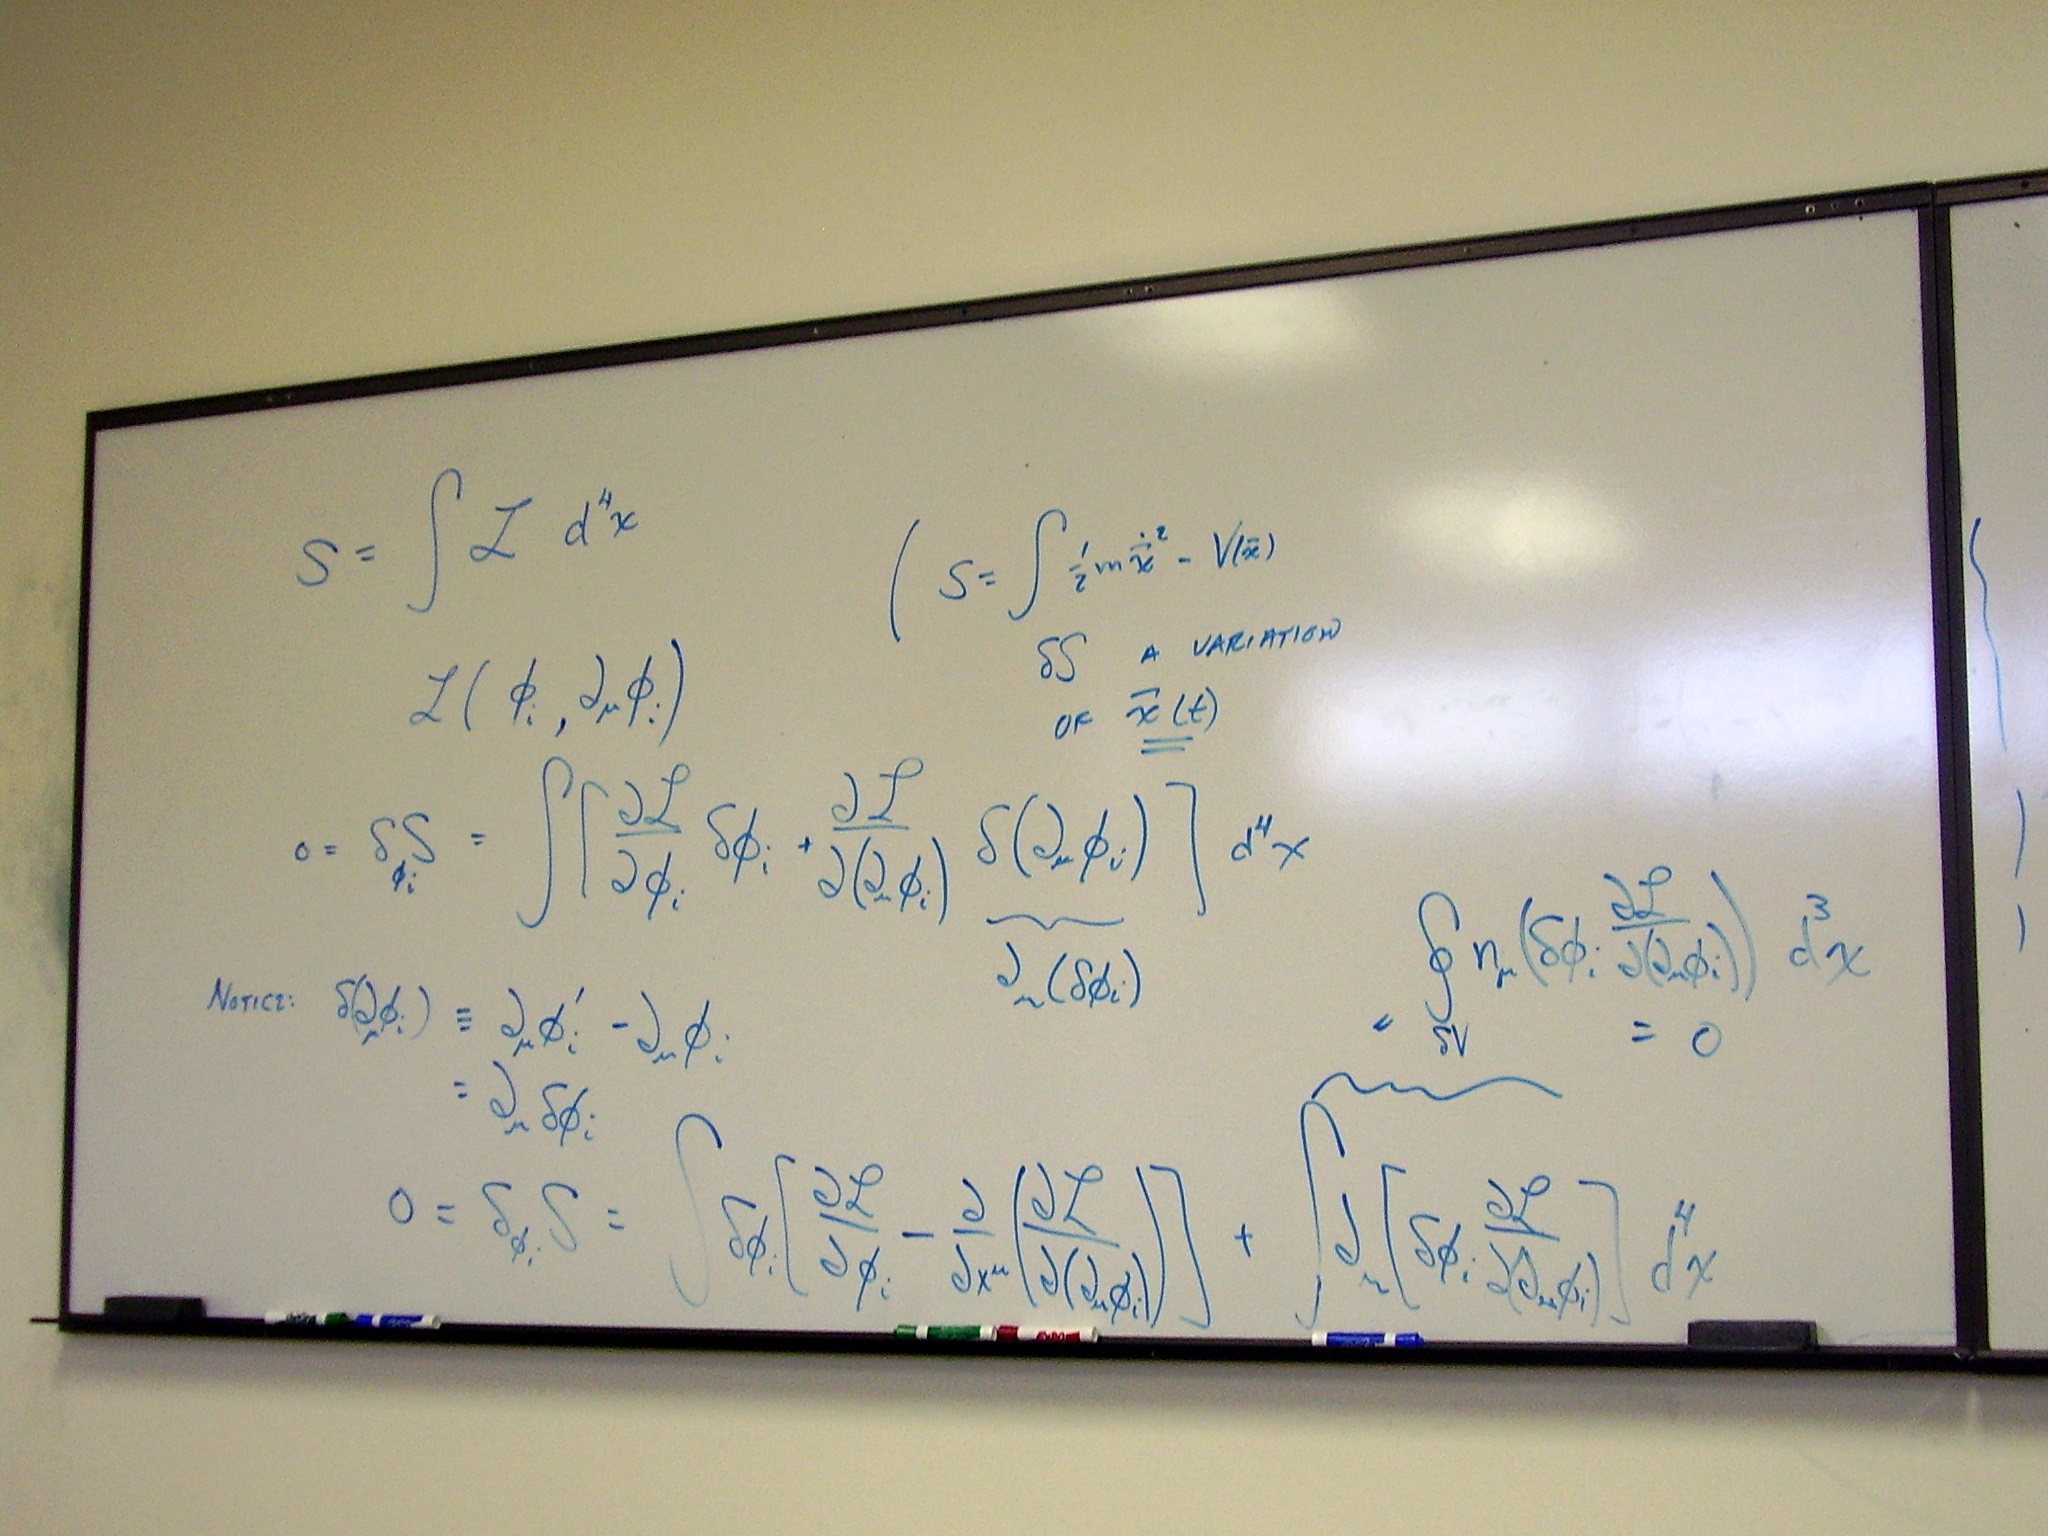 S = ∫ ℒ d⁴x
( S = ∫ ½ m ẋ̄² - V(x̄)
δS A VARIATION
OF x̄(t)
ℒ( ϕᵢ , ∂_μ ϕᵢ )
0 = δ_ϕᵢ S = ∫ [ ∂ℒ/∂ϕᵢ δϕᵢ + ∂ℒ/∂(∂_μ ϕᵢ) δ(∂_μ ϕᵢ) ] d⁴x
∂_μ(δϕᵢ)
NOTICE: δ(∂_μ ϕᵢ) ≡ ∂_μ ϕᵢ′ - ∂_μ ϕᵢ
= ∂_μ δϕᵢ
= ∮_δV n_μ ( δϕᵢ ∂ℒ/∂(∂_μ ϕᵢ) ) d³x
= 0
0 = δ_ϕᵢ S = ∫ δϕᵢ [ ∂ℒ/∂ϕᵢ - ∂/∂x^μ ( ∂ℒ/∂(∂_μ ϕᵢ) ) ] + ∫ ∂_μ [ δϕᵢ ∂ℒ/∂(∂_μ ϕᵢ) ] d⁴x